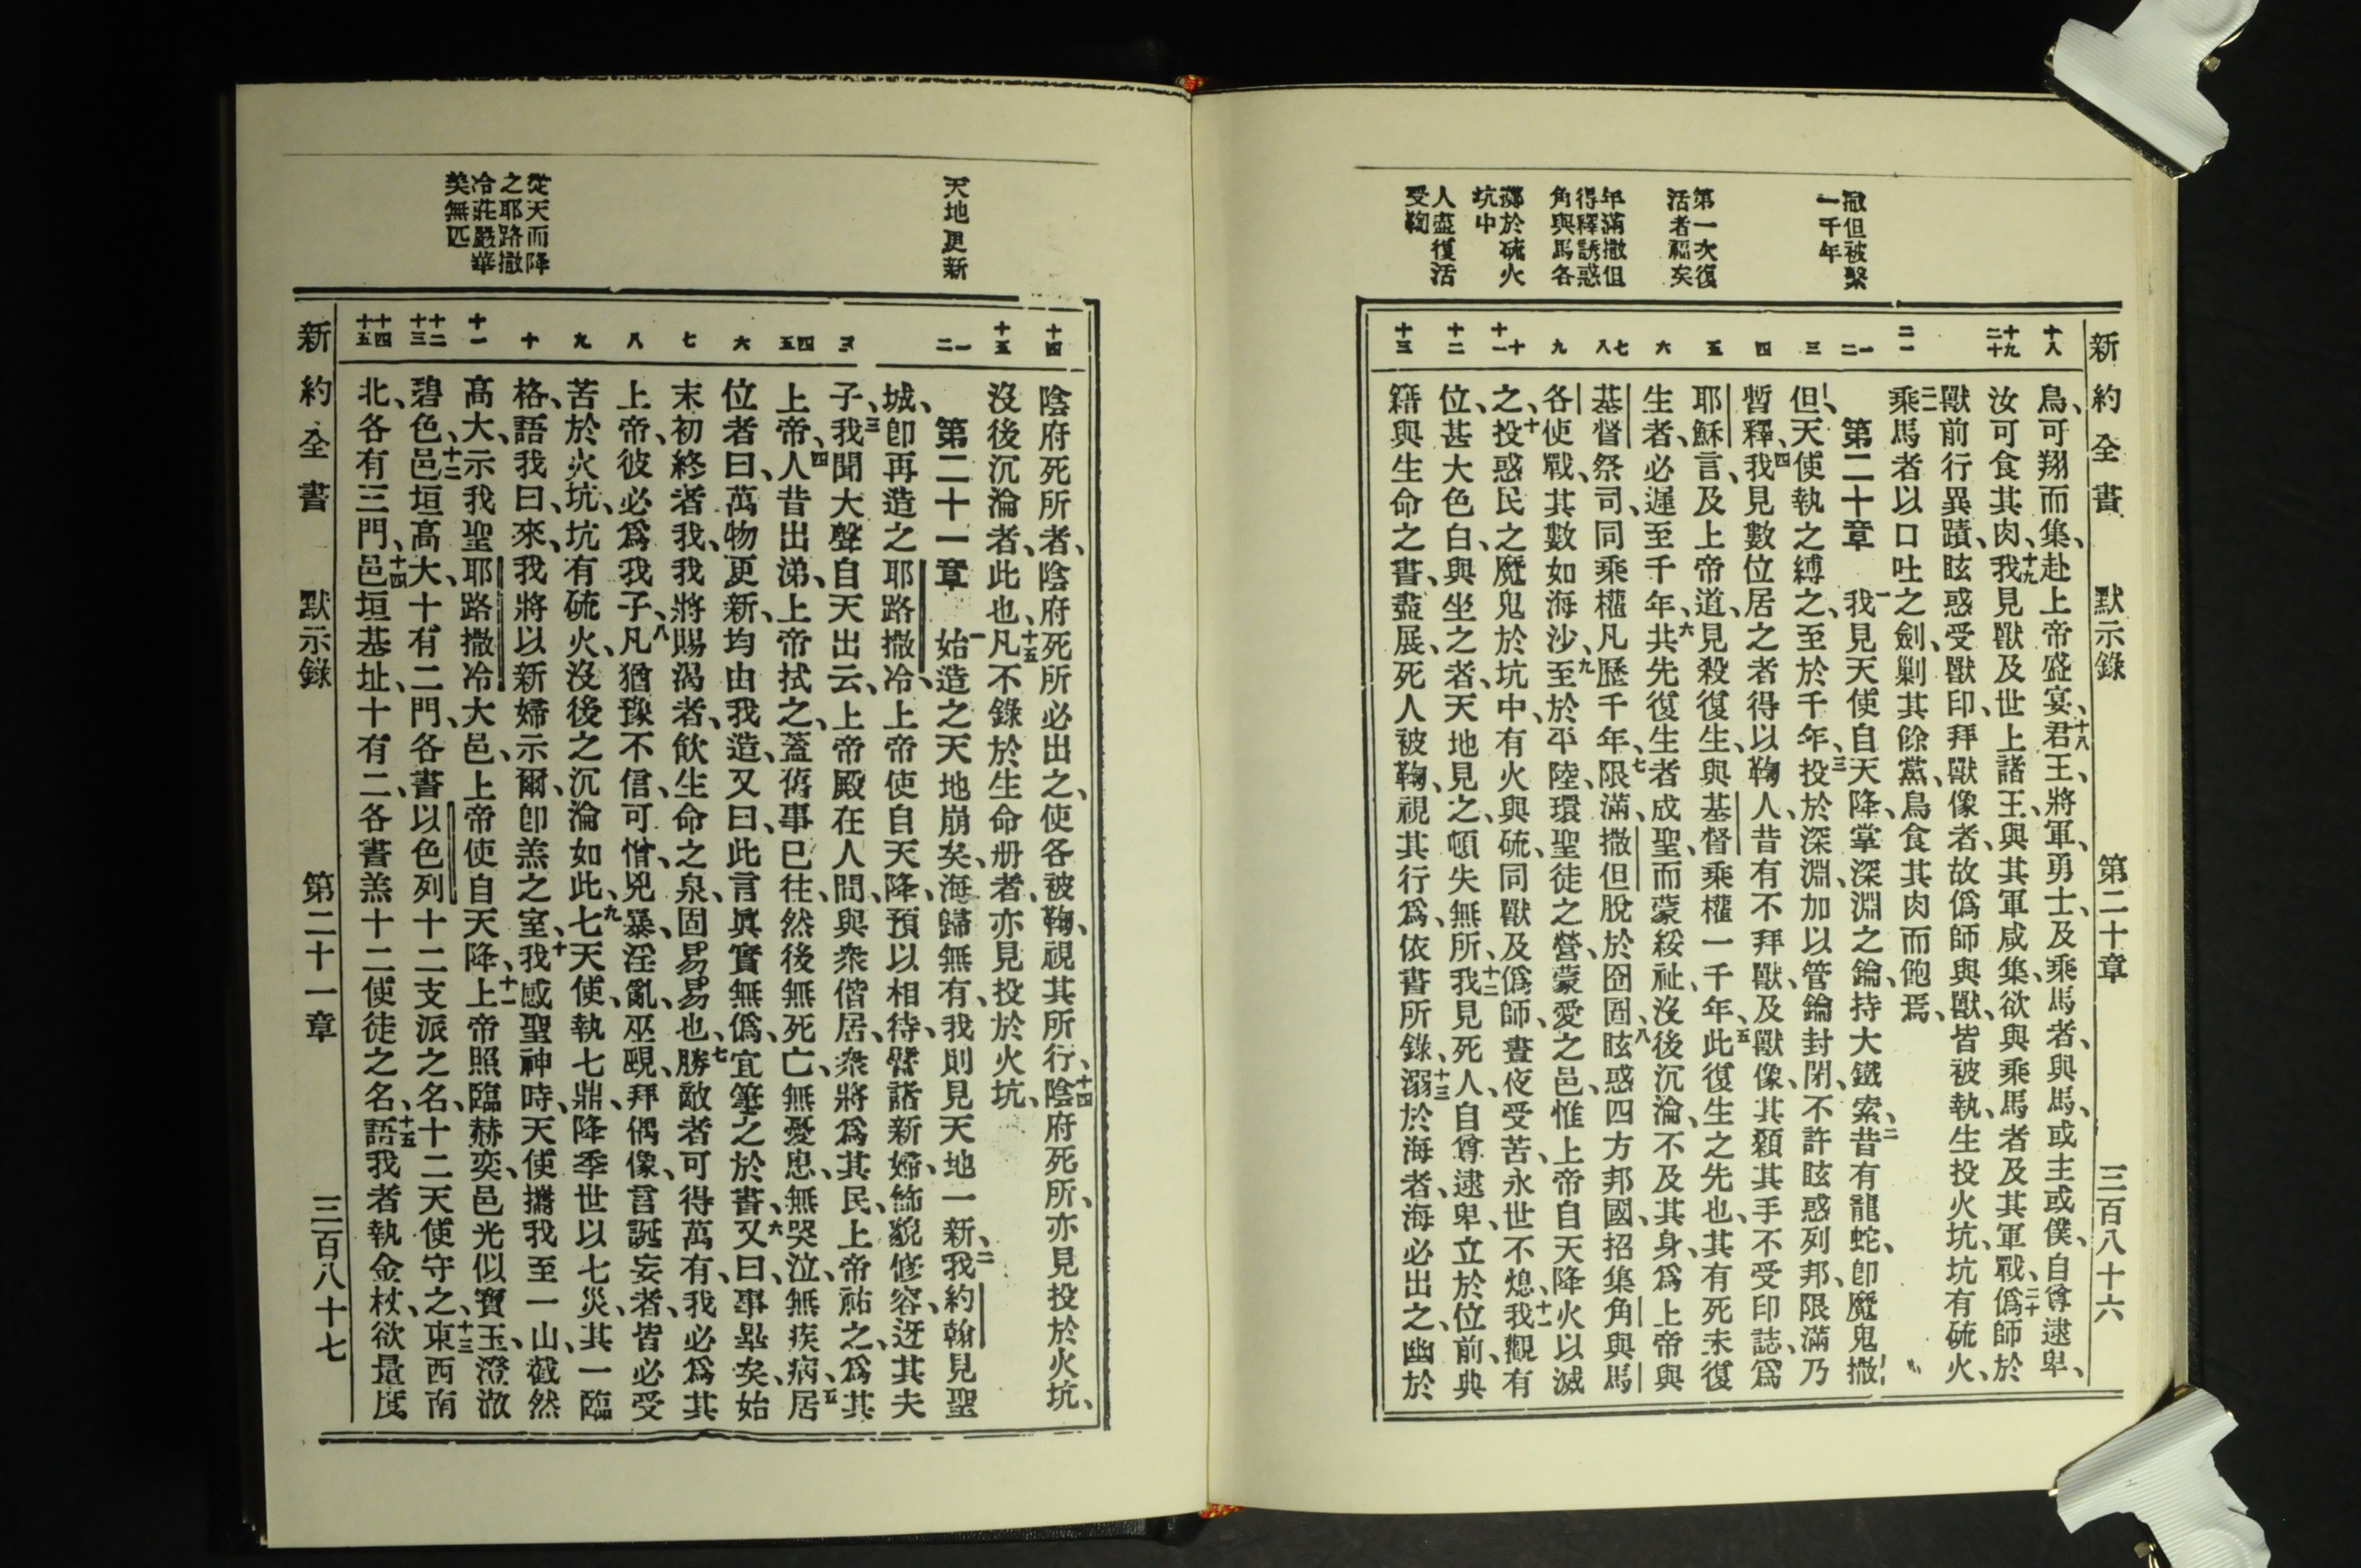 新約全書　默示錄　第二十章　三百八十六
撒但被繫
一千年
第一次復
活者福矣
年滿撒但
得釋誘惑
角與馬各
擲於硫火
坑中
人盡復活
受鞫
十八
十九
二十
二一
一
二
三
四
五
六
七
八
九
十
十一
十二
十三
鳥、可翔而集、赴上帝盛宴、十八君王、將軍、勇士、及乘馬者、與馬、或主或僕、自尊逮卑、
汝可食其肉、十九我見獸及世上諸王、與其軍咸集、欲與乘馬者及其軍戰、二十僞師於
獸前行異蹟、眩惑受獸印、拜獸像者、故僞師與獸、皆被執、生投火坑、坑有硫火、
二一乘馬者以口吐之劍、剿其餘黨、鳥食其肉而飽焉、
第二十章　一我見天使自天降、掌深淵之鑰、持大鐵索、二昔有龍蛇、卽魔鬼撒
但、天使執之縛之、至於千年、三投於深淵、加以管鑰封閉、不許眩惑列邦、限滿乃
暫釋、四我見數位居之者得以鞫人、昔有不拜獸、及獸像、其額其手不受印誌、爲
耶穌言、及上帝道、見殺復生、與基督乘權一千年、五此復生之先也、其有死未復
生者、必遲至千年、六共先復生者成聖、而蒙綏祉、沒後沉淪、不及其身、爲上帝與
基督祭司、同乘權凡歷千年、七限滿、撒但脫於囹圄、八眩惑四方邦國、招集角與馬
各使戰、其數如海沙、九至於平陸、環聖徒之營、蒙愛之邑、惟上帝自天降火以滅
之、十投惑民之魔鬼於坑中、有火與硫、同獸及僞師、晝夜受苦、永世不熄、十一我觀有
位、甚大色白、與坐之者、天地見之、頓失無所、十二我見死人、自尊逮卑、立於位前、典
籍與生命之書、盡展、死人被鞫、視其行爲、依書所錄、十三溺於海者、海必出之、幽於
天地更新
從天而降
之耶路撒
冷莊嚴華
美無匹
十四
十五
一
二
三
四
五
六
七
八
九
十
十一
十二
十三
十四
十五
陰府死所者、陰府死所必出之、使各被鞫、視其所行、十四陰府死所、亦見投於火坑、
沒後沉淪者、此也、十五凡不錄於生命册者、亦見投於火坑、
第二十一章　一始造之天地崩矣、海歸無有、我則見天地一新、二我約翰見聖
城、卽再造之耶路撒冷、上帝使自天降、預以相待、譬諸新婦、飾貌修容、迓其夫
子、三我聞大聲自天出云、上帝殿在人間、與衆偕居、衆將爲其民、上帝祐之、爲其
上帝、四人昔出涕、上帝拭之、蓋舊事已往、然後無死亡、無憂思、無哭泣、無疾病、五居
位者曰、萬物更新、均由我造、又曰、此言眞實無僞、宜筆之於書、六又曰、事畢矣、始
末初終者我、我將賜渴者、飲生命之泉、固易易也、七勝敵者可得萬有、我必爲其
上帝、彼必爲我子、八凡猶豫不信、可憎、兇暴、淫亂、巫覡、拜偶像、言誕妄者、皆必受
苦於火坑、坑有硫火、沒後之沉淪如此、九七天使、執七鼎、降季世以七災、其一臨
格、語我曰、來、我將以新婦示爾、卽羔之室、十我感聖神時、天使攜我至一山、截然
高大、示我聖耶路撒冷大邑、上帝使自天降、十一上帝照臨赫奕、邑光似寶玉、澄澈
碧色、十二邑垣高大、十有二門、各書以色列十二支派之名、十二天使守之、十三東西南
北、各有三門、十四邑垣基址、十有二、各書羔十二使徒之名、十五語我者執金杖、欲量度
新約全書　默示錄　第二十一章　三百八十七